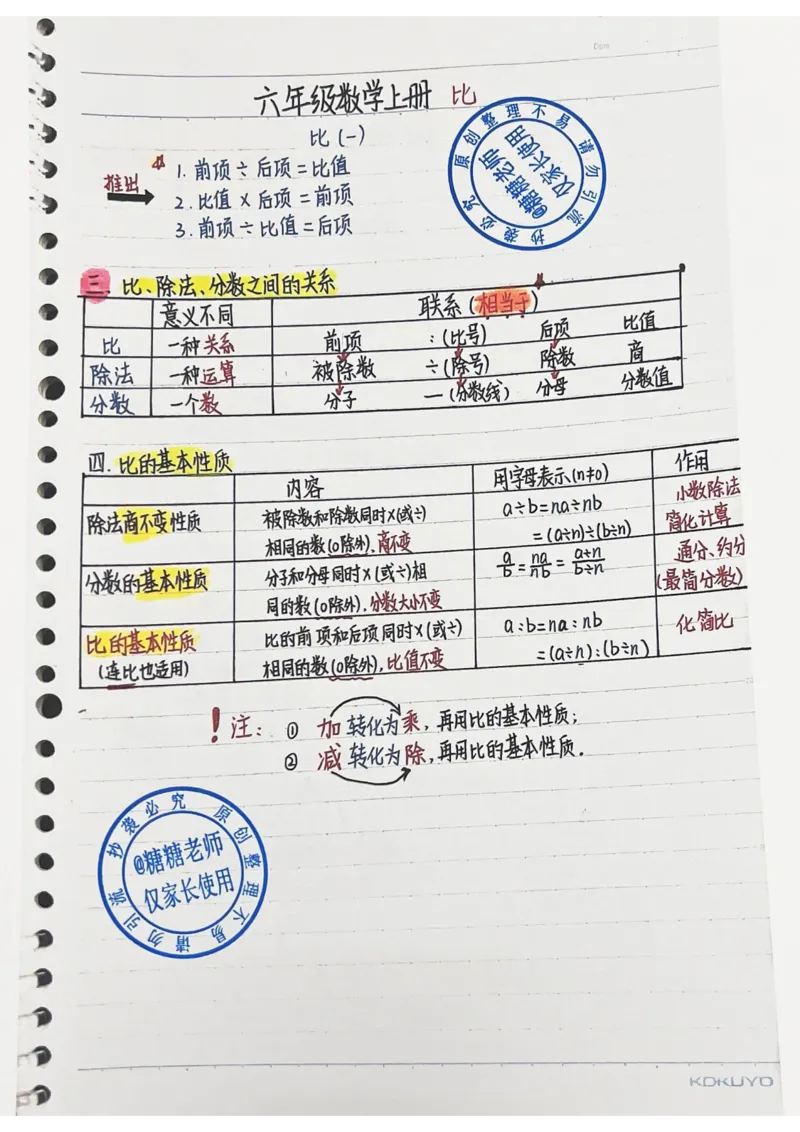 六年级数学上册 比
比(一)
推出
1. 前项÷后项=比值
2. 比值×后项=前项
3. 前项÷比值=后项
原创整理不易 请勿引流 抄袭必究
@糖糖老师
仅家长使用
三. 比、除法、分数之间的关系
意义不同 联系(相当于)
比 一种关系 前项 :(比号) 后项 比值
除法 一种运算 被除数 ÷(除号) 除数 商
分数 一个数 分子 —(分数线) 分母 分数值
四. 比的基本性质
内容 用字母表示(n≠0) 作用
除法商不变性质 被除数和除数同时×(或÷) a÷b=na÷nb 小数除法
相同的数(0除外),商不变 =(a÷n)÷(b÷n) 简化计算
分数的基本性质 分子和分母同时×(或÷)相 a/b=na/nb=a÷n/b÷n 通分、约分
同的数(0除外),分数大小不变 (最简分数)
比的基本性质 比的前项和后项同时×(或÷) a:b=na:nb 化简比
(连比也适用) 相同的数(0除外),比值不变 =(a÷n):(b÷n)
!注: ① 加转化为乘,再用比的基本性质;
② 减转化为除,再用比的基本性质.
原创整理不易 请勿引流 抄袭必究
@糖糖老师
仅家长使用
KOKUYO